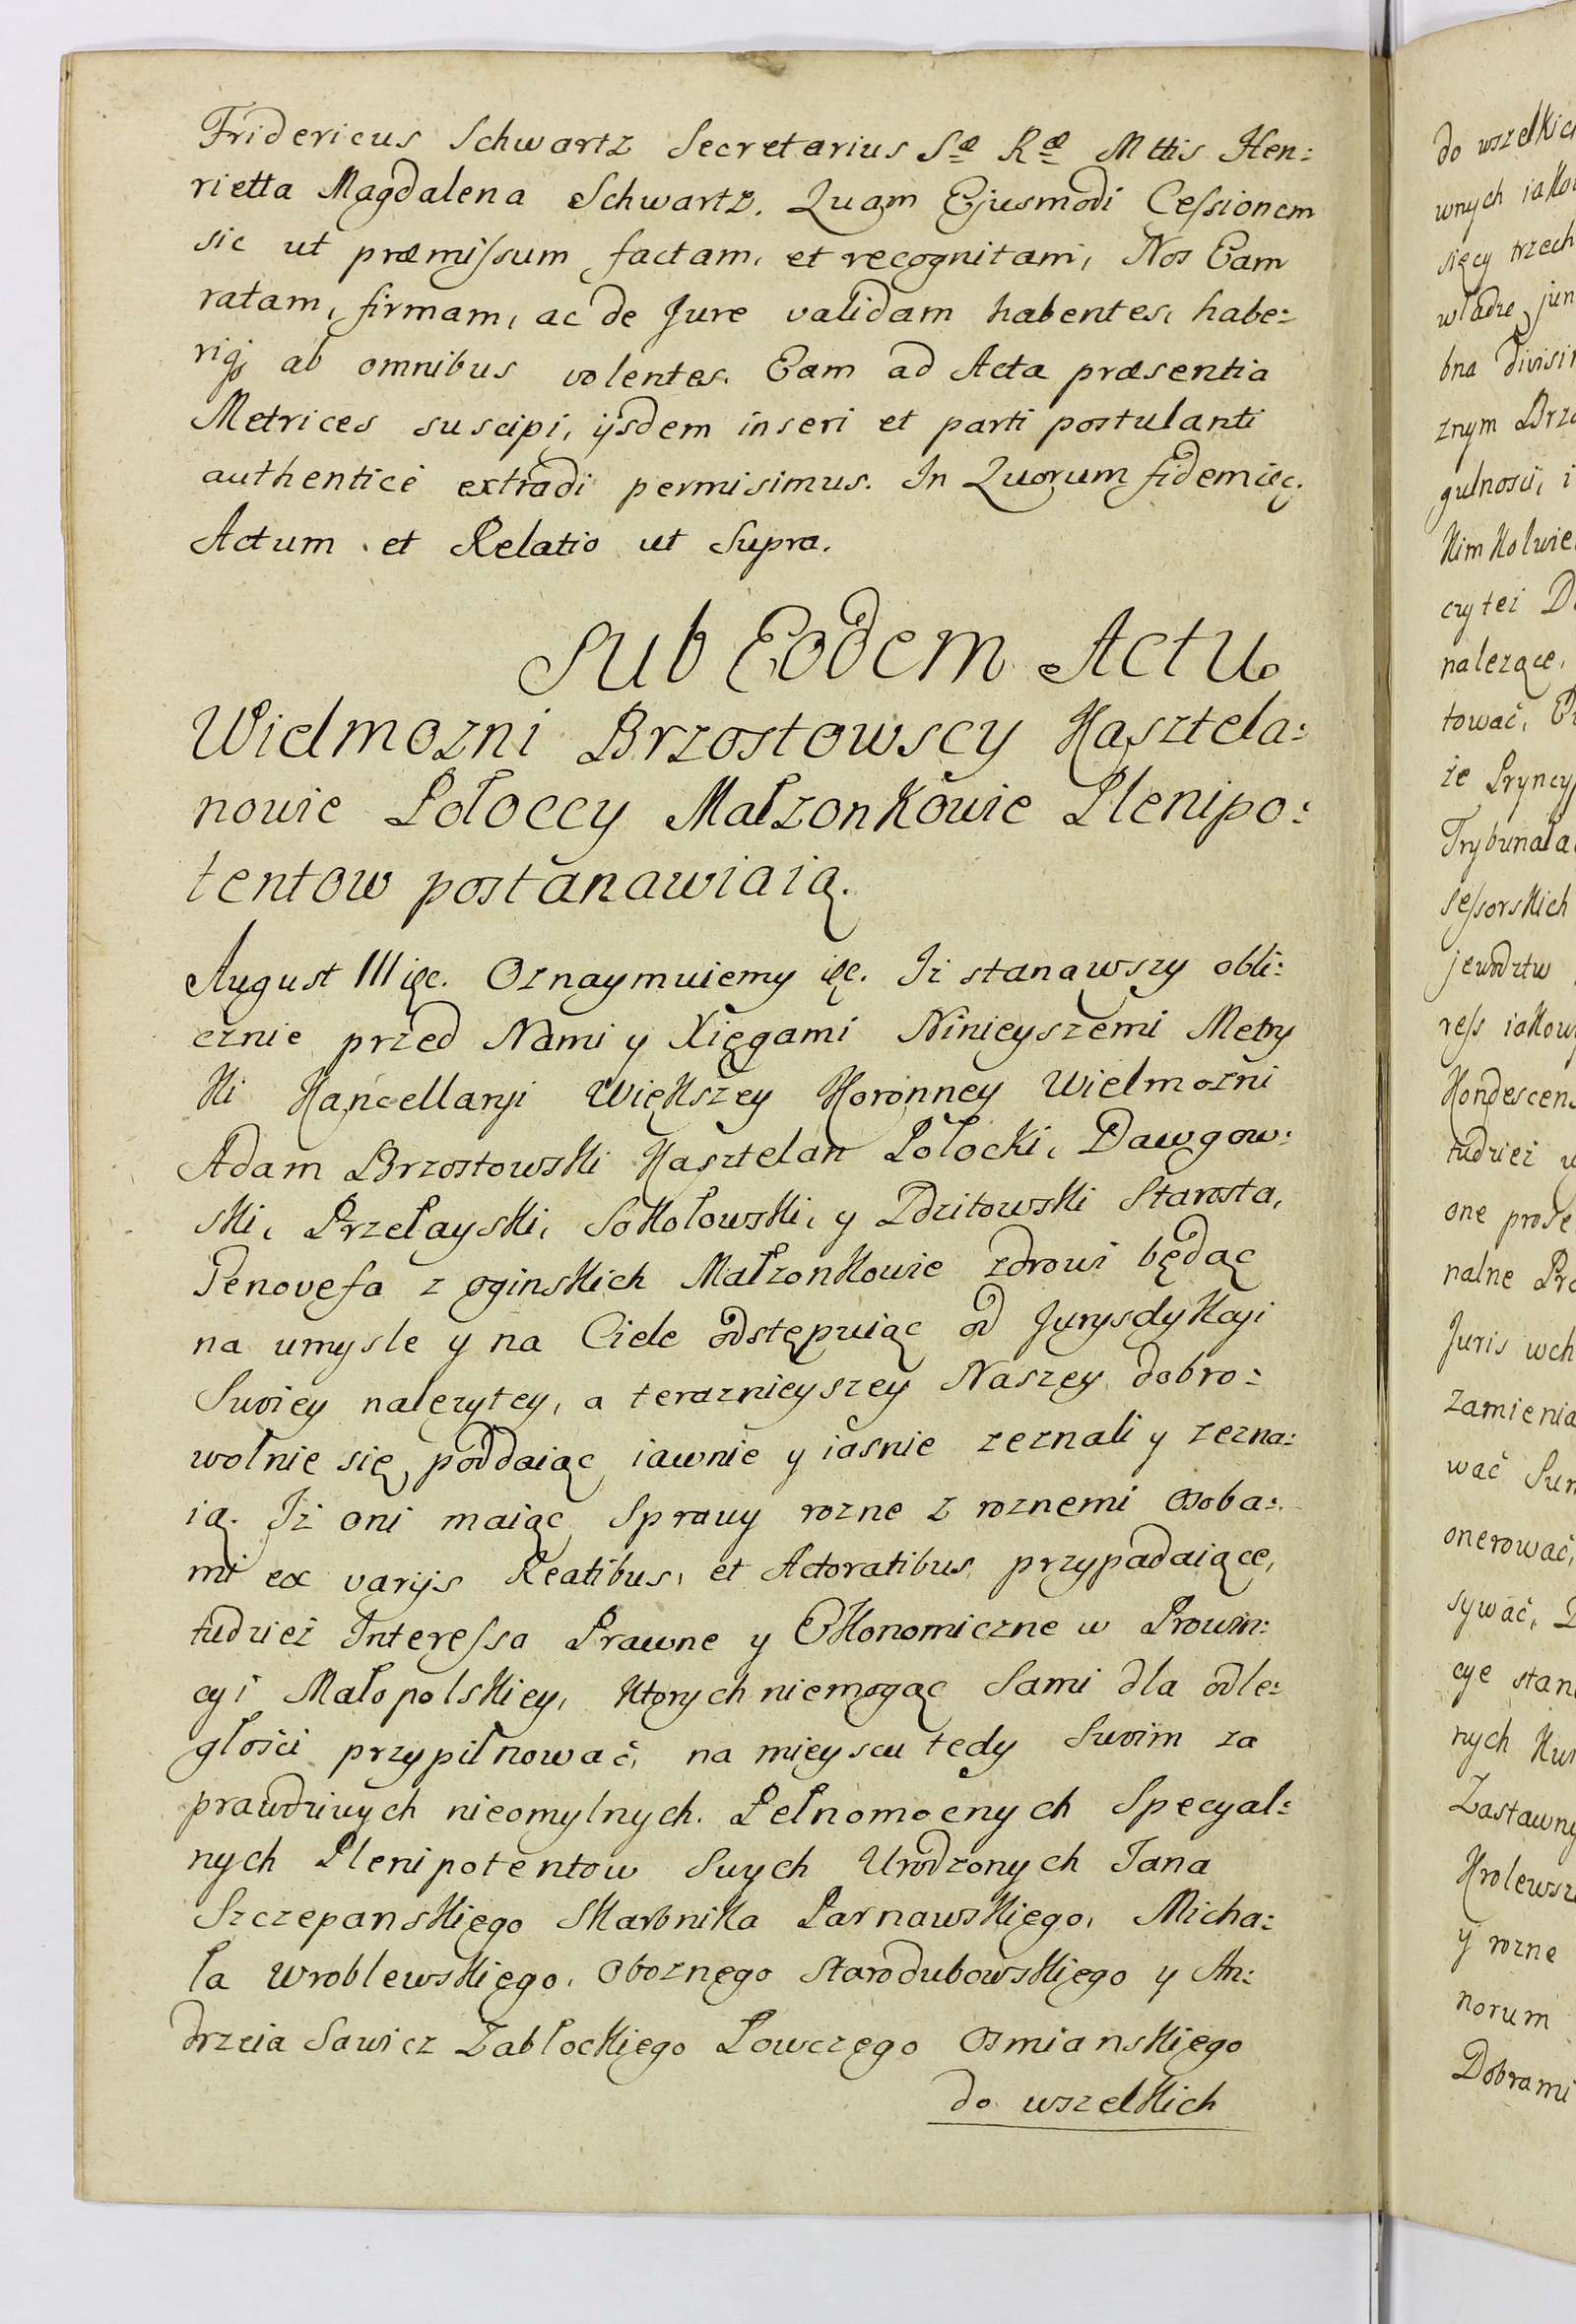 Fridericus Schwartz Secretarius Sæ Ræ Mttis Hen:
rietta Magdalena Schwartz. Quam Ejusmodi Cessionem
sic ut præmissum factam, et recognitam, Nos Eam
ratam, firmam, ac de Jure validam habentes, habe:
riqȝ ab omnibus volentes. Eam ad Acta præsentia
Metrices suscipi, ijsdem inseri et parti postulanti
authentice extradi permisimus. In Quorum fidem ięc.
Actum et Relatio ut Supra.
Sub Eodem Actu
Wielmozni Brzostowscy Kasztela:
nowie Połoccy Małzonkowie Plenipo:
tentow postanawiaią.
August III ięc. Oznaymuiemy ięc. Iż stanąwszy obli:
cznie przed Nami y Xięgami Ninieyszemi Metry
ki Kancellaryi Większey Koronney Wielmozni
Adam Brzostowski Kasztelan Połocki, Dawgow:
ski, Przełayski, Sokołowski, y Zdzitowski Starosta,
Genovefa z oginskich Małzonkowie zdrowi będąc
na umysle y na Ciele odstępuiąc od Jurysdykcyi
Swoiey nalezytey, a teraznieyszey Naszey dobro:
wolnie się poddaiąc iawnie y iasnie zeznali y zezna:
ią. Iż oni maiąc Sprawy rozne z roznemi osoba:
mi ex varijs Reatibus, et Actoratibus przypadaiące,
tudzież Interessa Prawne y Ekonomiczne w Prowin:
cyi Małopolskiey, ktorych niemogąc Sami dla odle:
głości przypilnować, na mieyscu tedy Swoim za
prawdziwych nieomylnych. Pełnomocnych Specyal:
nych Plenipotentow Swych Urodzonych Jana
Szczepanskiego Skarbnika Parnawskiego, Micha:
ła Wroblewskiego, Oboznego Starodubowskiego y An:
drzeia Sawicz Zabłockiego Łowczego Osmianskiego
do wszelkich
do wszelkich
wnych
sięcy trzech
władze
bna
znym
gulności, i
czy też
nalezące,
tować,
że
one
nalne
Juris
wać
onerować,
sywać,
cye
nych
y rozne
norum
Dobrami